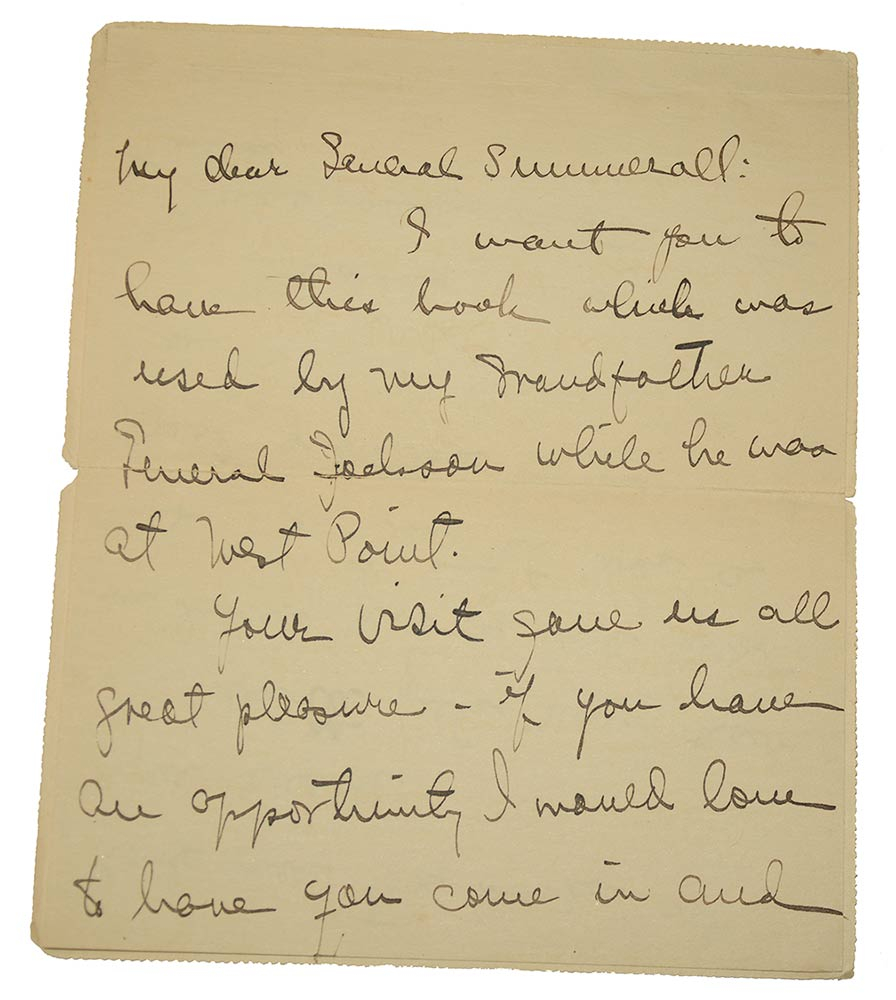 My dear General Summerall:
I want you to
have this book which was
used by my Grandfather
General Jackson while he was
at West Point.
Your visit gave us all
great pleasure - if you have
an opportunity I would love
to have you come in and